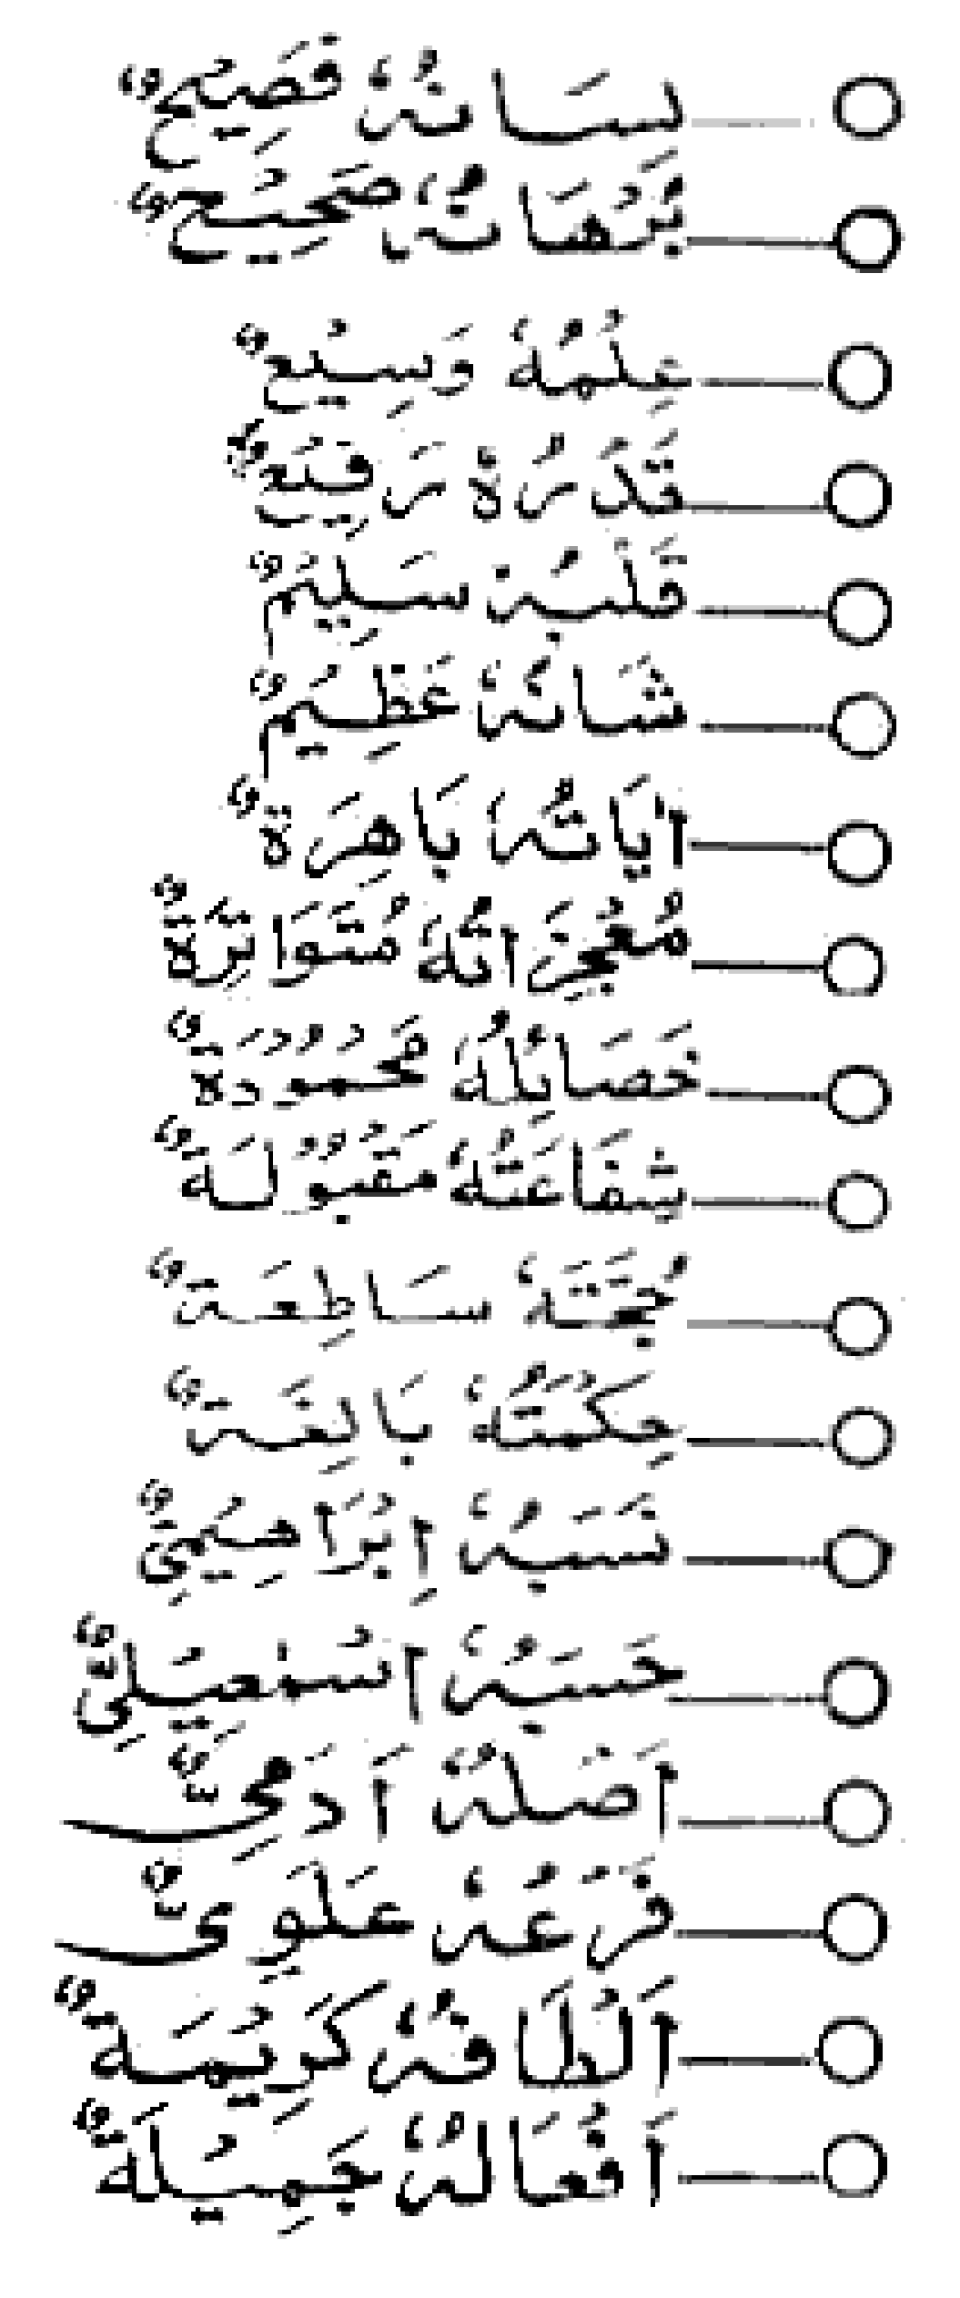 لِسَانُهٗ فَصِيْحٌ
بُرْهَانُهٗ صَحِيْحٌ
عِلْمُهٗ وَسِيْعٌ
قَدْرُهٗ رَفِيْعٌ
قَلْبُهٗ سَلِيْمٌ
شَانُهٗ عَظِيْمٌ
اٰيَاتُهٗ بَاهِرَةٌ
مُعْجِزَاتُهٗ مُتَوَاتِرَةٌ
خَصَائِلُهٗ مَحْمُوْدَةٌ
شِفَاعَتُهٗ مَقْبُوْلَةٌ
حُجَّتُهٗ سَاطِعَةٌ
حِكْمَتُهٗ بَالِغَةٌ
نَسَبُهٗ اِبْرَاهِيْمِيٌّ
حَسَبُهٗ اسْمٰعِيْلِيٌّ
اَصْلُهٗ اَدَمِيٌّ
فَرْعُهٗ عَلَوِيٌّ
اَلْطَافُهٗ كَرِيْمَةٌ
اَفْعَالُهٗ جَمِيْلَةٌ